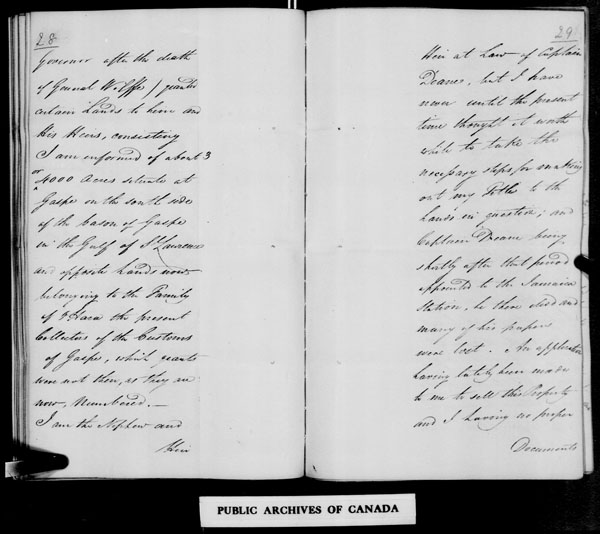 28
Governor after the death
of General Wolffe / granted
certain Lands to him and
His Heirs, consisting
I am informed of about 3
or
4000 Acres situate at
Gaspé on the south side
of the bason of Gaspé
in the Gulf of St Lawrence
and opposite Lands now
belonging to the Family
of O'Hara the present
Collector of the Customs
of Gaspé, which grants
were not then, as they are
now, Numbered. —
I am the Nephew and
Heir
29
Heir at Law of Captain
Deane, but I have
never until the present
time thought it worth
while to take the
necessary steps for making
out my Title to the
Lands in question; and
Captain Deane being
shortly after that period
appointed to the Jamaica
Station, he there died and
many of his papers
were lost. An application
having lately been made
to me to sell this Property
and I having no proper
Documents
PUBLIC ARCHIVES OF CANADA